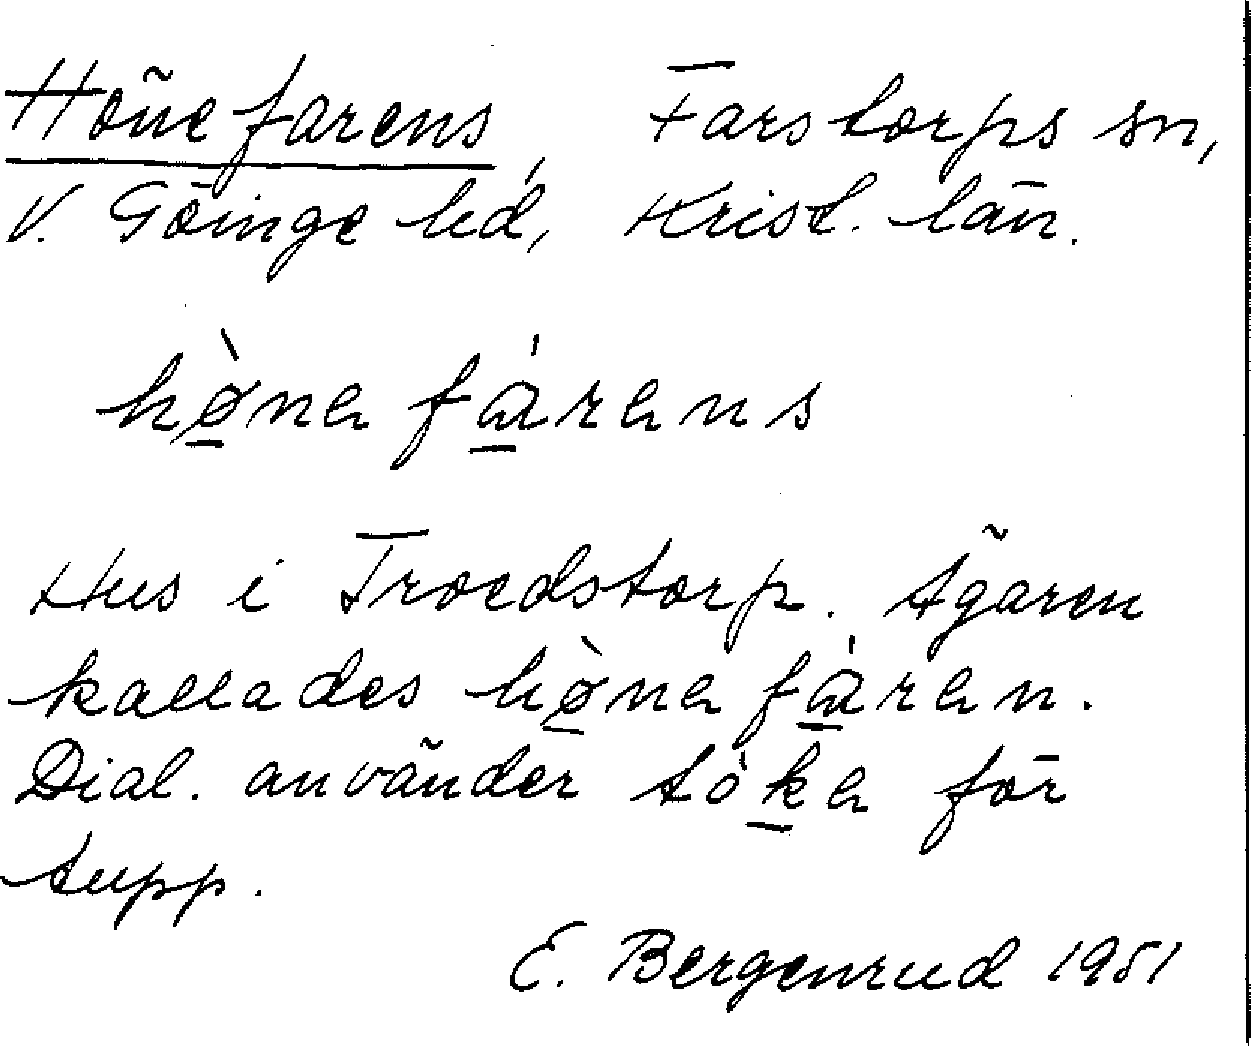 Hönefarens, Farstorps sn,
V. Göinge hd, Krist. län.
hø̀na fárans
Hus i Troedstorp. Ägaren
kallades hø̀na fáran.
Dial. använder tòka för
tupp.
E. Bergenrud 1951